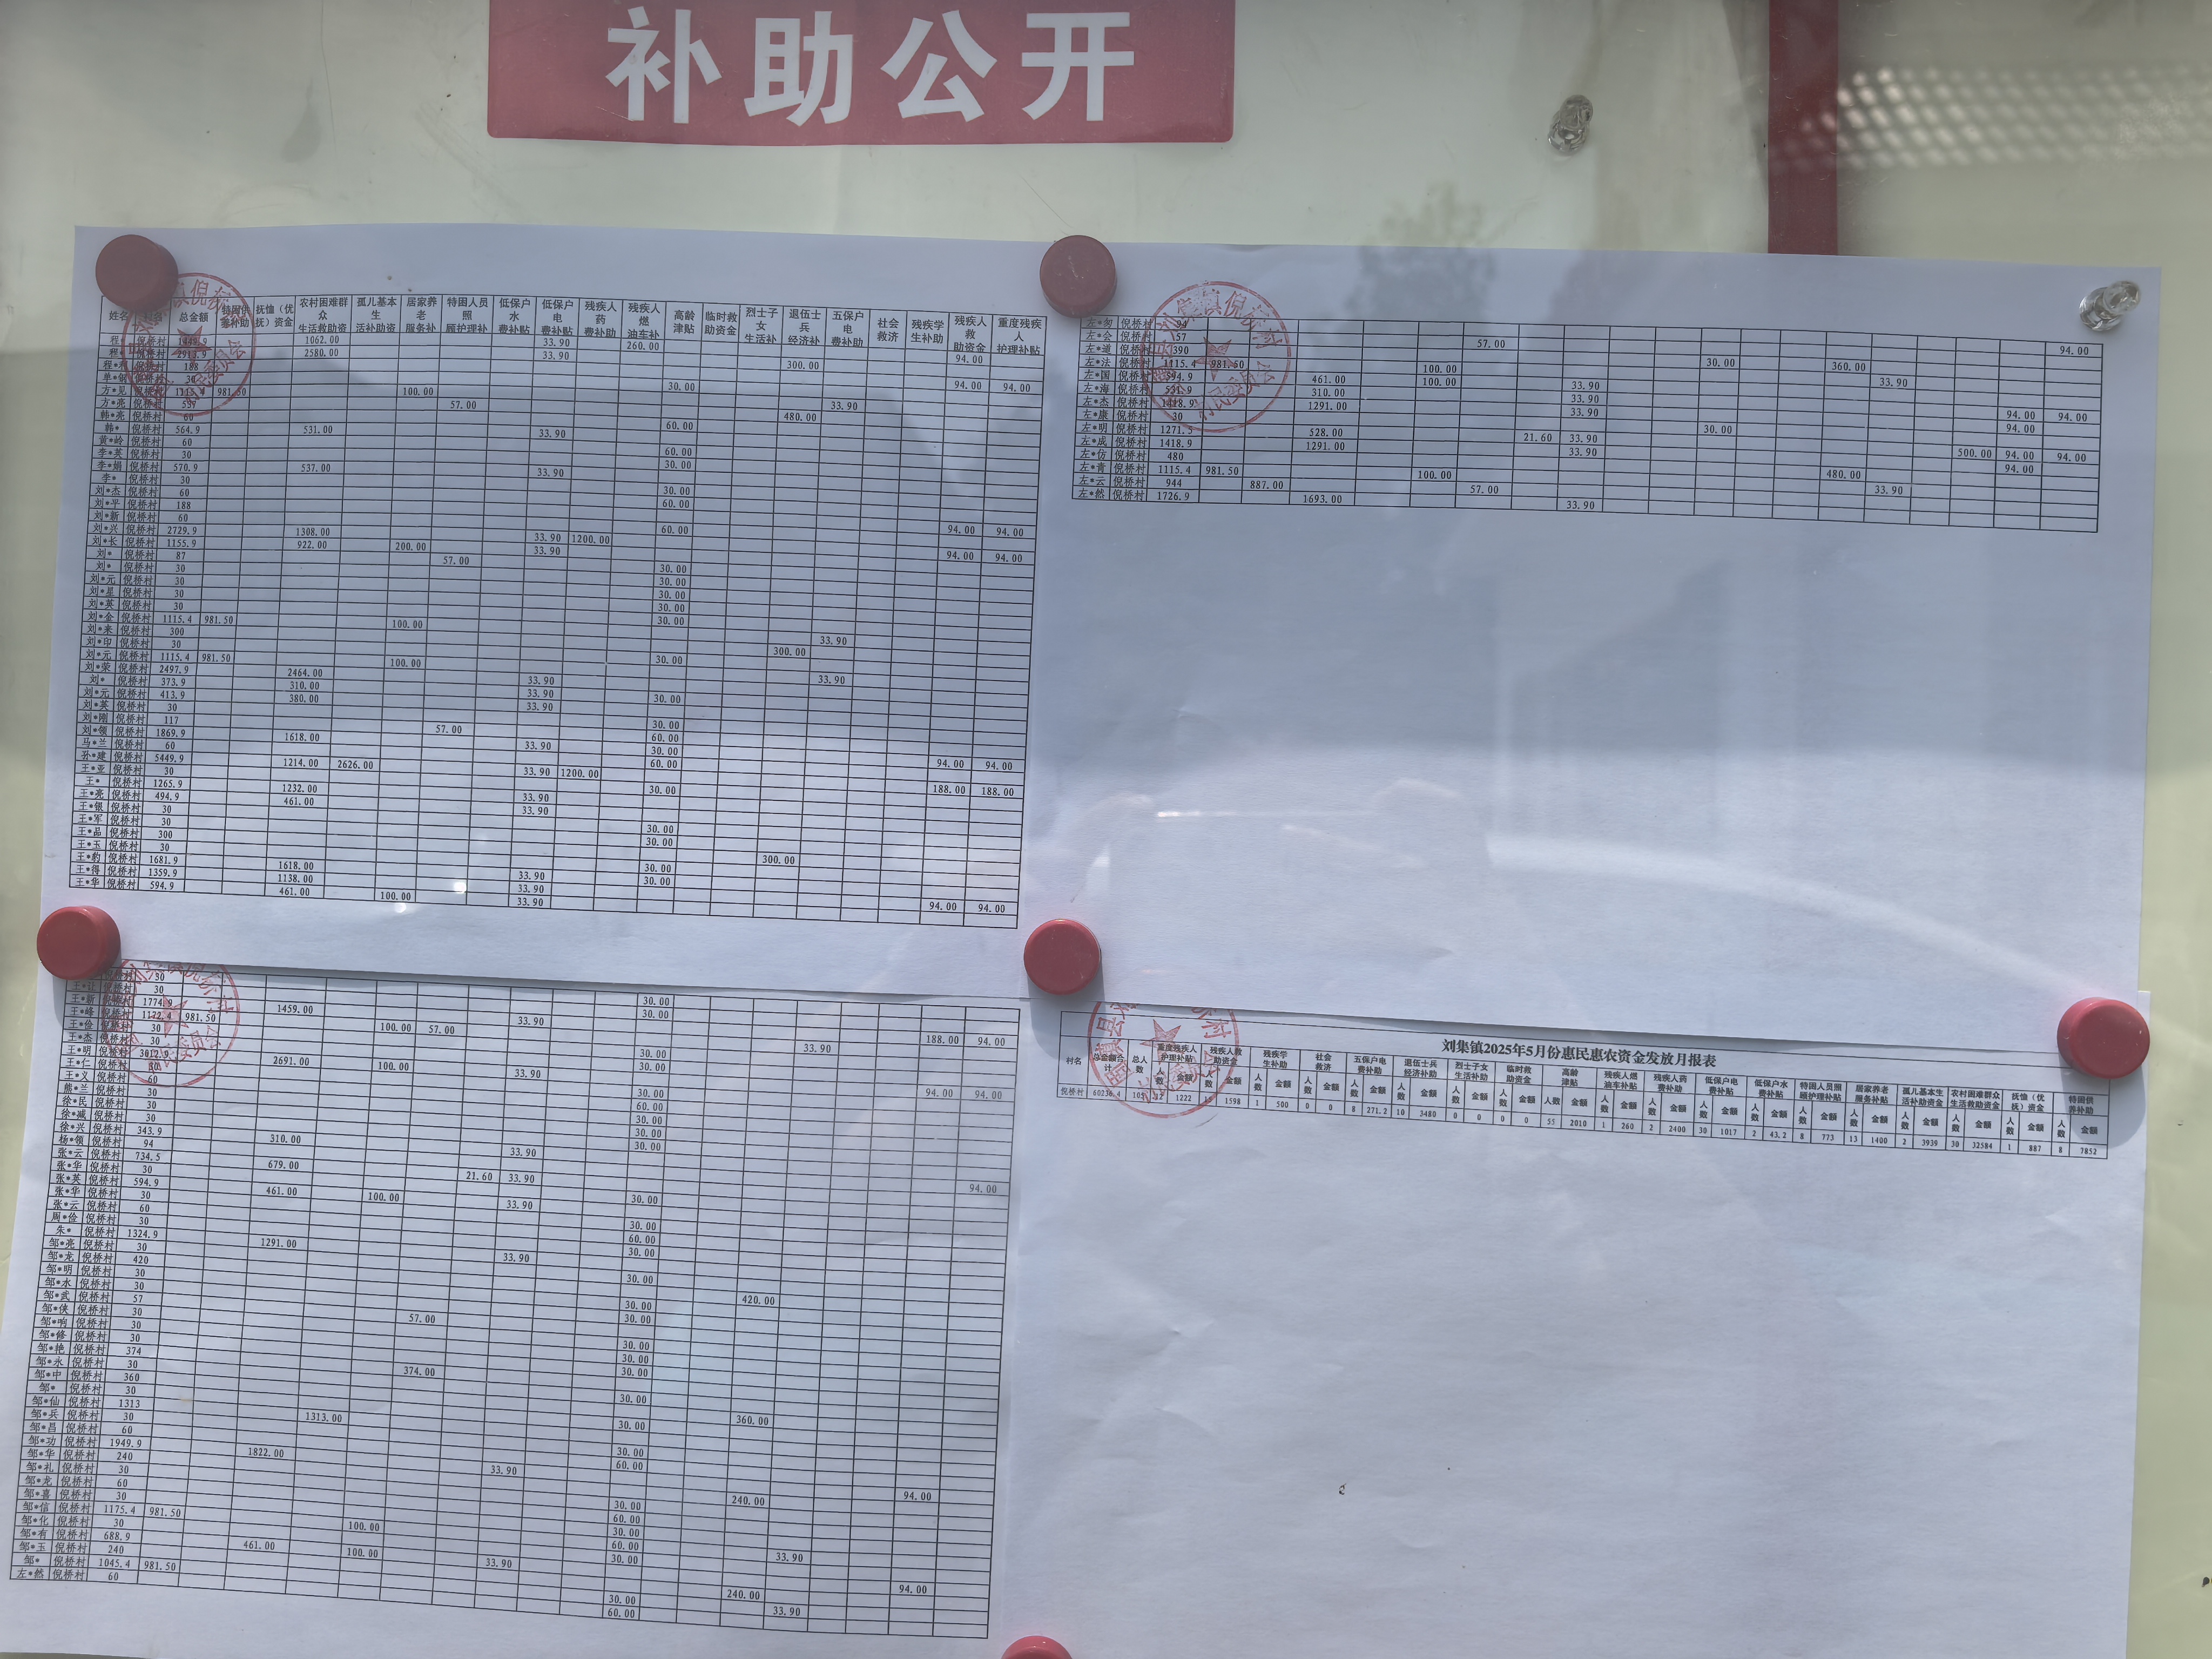 补助公开
姓名 村名 总金额 特困供养补助 抚恤（优抚）资金 农村困难群众生活救助资 孤儿基本生活补助资 居家养老服务补 特困人员照顾护理补 低保户水费补贴 低保户电费补贴 残疾人药费补助 残疾人燃油车补 高龄津贴 临时救助资金 烈士子女生活补 退伍士兵经济补 五保户电费补助 社会救济 残疾学生补助 残疾人救助资金 重度残疾人护理补贴
方*见 倪桥村 981.50 100.00 33.90
方*亮 倪桥村 57.00 480.00
韩*亮 倪桥村 60 60.00
韩* 倪桥村 564.9 531.00 33.90
黄*岭 倪桥村 60 60.00
李*英 倪桥村 30 30.00
李*娟 倪桥村 570.9 537.00 33.90
李* 倪桥村 30 30.00
刘*杰 倪桥村 60 60.00
刘*平 倪桥村 188 94.00 94.00
刘*新 倪桥村 60 60.00
刘*兴 倪桥村 2729.9 1308.00 33.90 1200.00 94.00 94.00
刘*长 倪桥村 1155.9 922.00 200.00 33.90
刘* 倪桥村 87 57.00 30.00
刘* 倪桥村 30 30.00
刘*元 倪桥村 30 30.00
刘*星 倪桥村 30 30.00
刘*英 倪桥村 30 30.00
刘*金 倪桥村 1115.4 981.50 100.00 33.90
刘*来 倪桥村 300 300.00
刘*印 倪桥村 30 30.00
刘*元 倪桥村 1115.4 981.50 100.00 33.90
刘*荣 倪桥村 2497.9 2464.00 33.90
刘* 倪桥村 373.9 310.00 33.90 30.00
刘*元 倪桥村 413.9 380.00 33.90
刘*英 倪桥村 30 30.00
刘*刚 倪桥村 117 57.00 60.00
刘*领 倪桥村 1869.9 1618.00 33.90 30.00 94.00 94.00
马*兰 倪桥村 60 60.00
孙*建 倪桥村 5449.9 1214.00 2626.00 33.90 1200.00 188.00 188.00
王*亚 倪桥村 30 30.00
王* 倪桥村 1265.9 1232.00 33.90
王*亮 倪桥村 494.9 461.00 33.90
王*银 倪桥村 30 30.00
王*军 倪桥村 30 30.00
王*品 倪桥村 300 300.00
王*玉 倪桥村 30 30.00
王*豹 倪桥村 1681.9 1618.00 33.90 30.00
王*得 倪桥村 1359.9 1138.00 33.90 94.00 94.00
王*华 倪桥村 594.9 461.00 100.00 33.90
左*会 倪桥村 157 57.00
左*道 倪桥村 390 30.00 360.00
左*法 倪桥村 1115.4 981.50 100.00 33.90
左*国 倪桥村 594.9 461.00 100.00 33.90
左*海 倪桥村 310.00 33.90 94.00 94.00
左*杰 倪桥村 1418.9 1291.00 33.90 94.00
左*康 倪桥村 30 30.00
左*明 倪桥村 1271.5 528.00 21.60 33.90 500.00 94.00 94.00
左*成 倪桥村 1418.9 1291.00 33.90 94.00
左*仿 倪桥村 480 480.00
左*青 倪桥村 1115.4 981.50 100.00 33.90
左*云 倪桥村 944 887.00 57.00
左*然 倪桥村 1726.9 1693.00 33.90
倪桥村 30 30.00
王*让 倪桥村 30 30.00
王*新 倪桥村 1774.9 1459.00 33.90 188.00 94.00
王*峰 倪桥村 1172.4 981.50 100.00 57.00 33.90
王*俭 倪桥村 30 30.00
王*杰 倪桥村 30 30.00
王*明 倪桥村 3012.9 2691.00 100.00 33.90 94.00 94.00
王*仁 倪桥村 30 30.00
王*义 倪桥村 60 60.00
熊*兰 倪桥村 30 30.00
徐*民 倪桥村 30 30.00
徐*减 倪桥村 30 30.00
徐*兴 倪桥村 343.9 310.00 33.90
杨*领 倪桥村 94 94.00
张*云 倪桥村 734.5 679.00 21.60 33.90
张*华 倪桥村 30 30.00
张*英 倪桥村 594.9 461.00 100.00 33.90
张*华 倪桥村 30 30.00
张*云 倪桥村 60 60.00
周*俭 倪桥村 30 30.00
朱* 倪桥村 1324.9 1291.00 33.90
邹*亮 倪桥村 30 30.00
邹*龙 倪桥村 420 420.00
邹*明 倪桥村 30 30.00
邹*水 倪桥村 30 30.00
邹*武 倪桥村 57 57.00
邹*侠 倪桥村 30 30.00
邹*响 倪桥村 30 30.00
邹*修 倪桥村 30 30.00
邹*艳 倪桥村 374 374.00
邹*永 倪桥村 30 30.00
邹*中 倪桥村 360 360.00
邹* 倪桥村 30 30.00
邹*仙 倪桥村 1313 1313.00
邹*兵 倪桥村 30 30.00
邹*昌 倪桥村 60 60.00
邹*功 倪桥村 1949.9 1822.00 33.90 94.00
邹*华 倪桥村 240 240.00
邹*礼 倪桥村 30 30.00
邹*龙 倪桥村 60 60.00
邹*喜 倪桥村 30 30.00
邹*信 倪桥村 1175.4 981.50 100.00 60.00 33.90
邹*化 倪桥村 30 30.00
邹*有 倪桥村 688.9 461.00 100.00 33.90 94.00
邹*玉 倪桥村 240 240.00
邹* 倪桥村 1045.4 981.50 30.00 33.90
左*然 倪桥村 60 60.00
刘集镇2025年5月份惠民惠农资金发放月报表
村名 总金额合计 总人数 重度残疾人护理补贴 残疾人救助资金 残疾学生补助 社会救济 五保户电费补助 退伍士兵经济补助 烈士子女生活补助 临时救助资金 高龄津贴 残疾人燃油车补贴 残疾人药费补助 低保户电费补贴 低保户水费补贴 特困人员照顾护理补贴 居家养老服务补贴 孤儿基本生活补助资金 农村困难群众生活救助资金 抚恤（优抚）资金 特困供养补助
人数 金额 人数 金额 人数 金额 人数 金额 人数 金额 人数 金额 人数 金额 人数 金额 人数 金额 人数 金额 人数 金额 人数 金额 人数 金额 人数 金额 人数 金额 人数 金额 人数 金额 人数 金额 人数 金额
倪桥村 60236.4 105 1222 1598 1 500 0 0 8 271.2 10 3480 0 0 0 0 55 2010 1 260 2 2400 30 1017 2 43.2 8 773 13 1400 2 3939 30 32584 1 887 8 7852